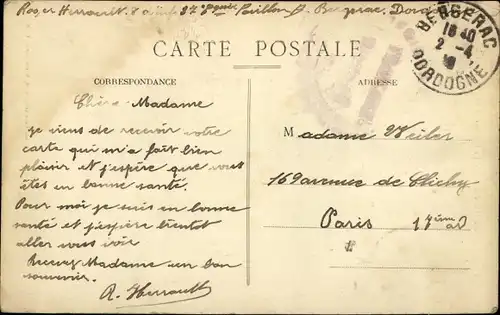 Roger Herrault 37 Pavillon Bergerac, Dord
BERGERAC
18 40
2 - 4
DORDOGNE
CARTE POSTALE
CORRESPONDANCE
ADRESSE
Chère Madame
je viens de recevoir votre
carte qui m'a fait bien
plaisir et j'espère que vous
êtes en bonne santé.
Pour moi je suis en bonne
santé et j'espère bientôt
aller vous voir
Recevez Madame un bon
souvenir.
R. Herrault
Madame Weiler
169 avenue de Clichy
Paris 17ième